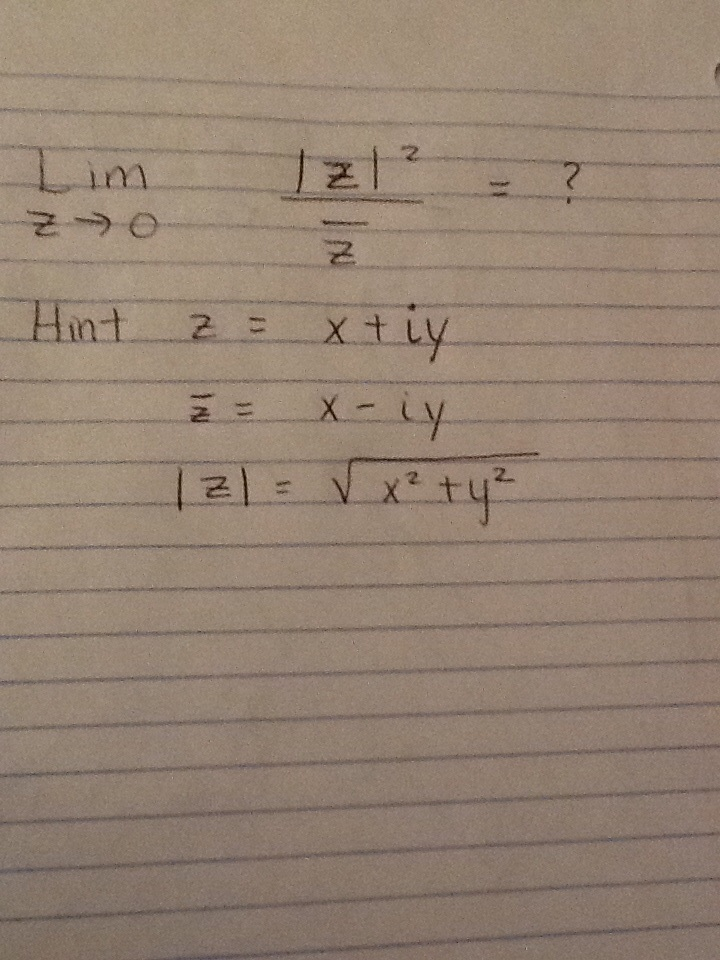 Lim |z|² = ?
z→0 z̅
Hint z = x + iy
z̅ = x - iy
|z| = √x² + y²